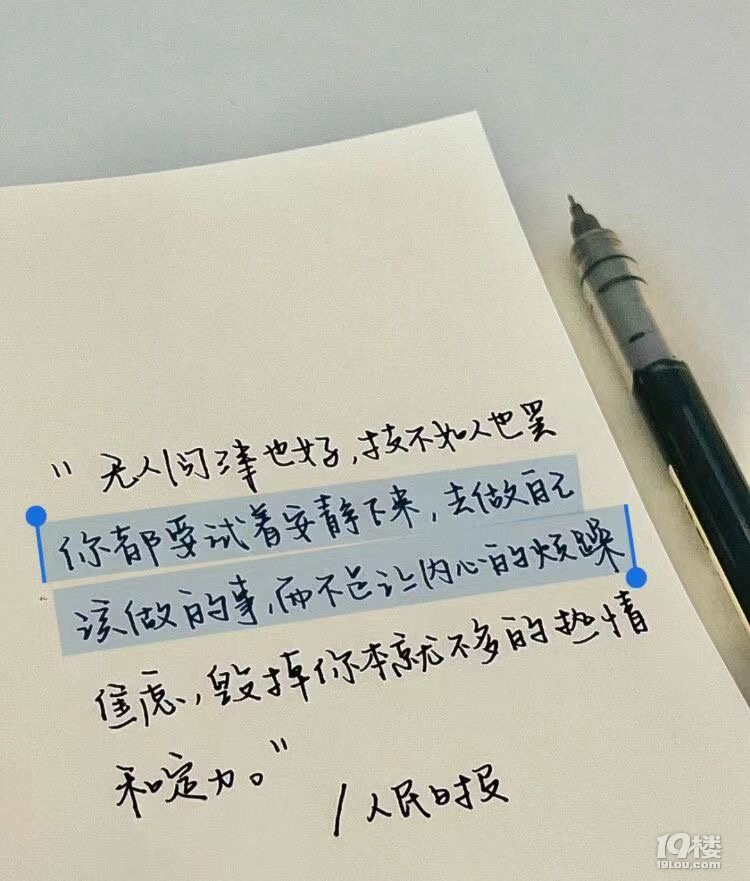 "无人问津也好,技不如人也罢
你都要试着安静下来,去做自己
该做的事,而不是让内心的烦躁
焦虑,毁掉你本就不多的热情
和定力。"
/人民日报
19楼
19lou.com